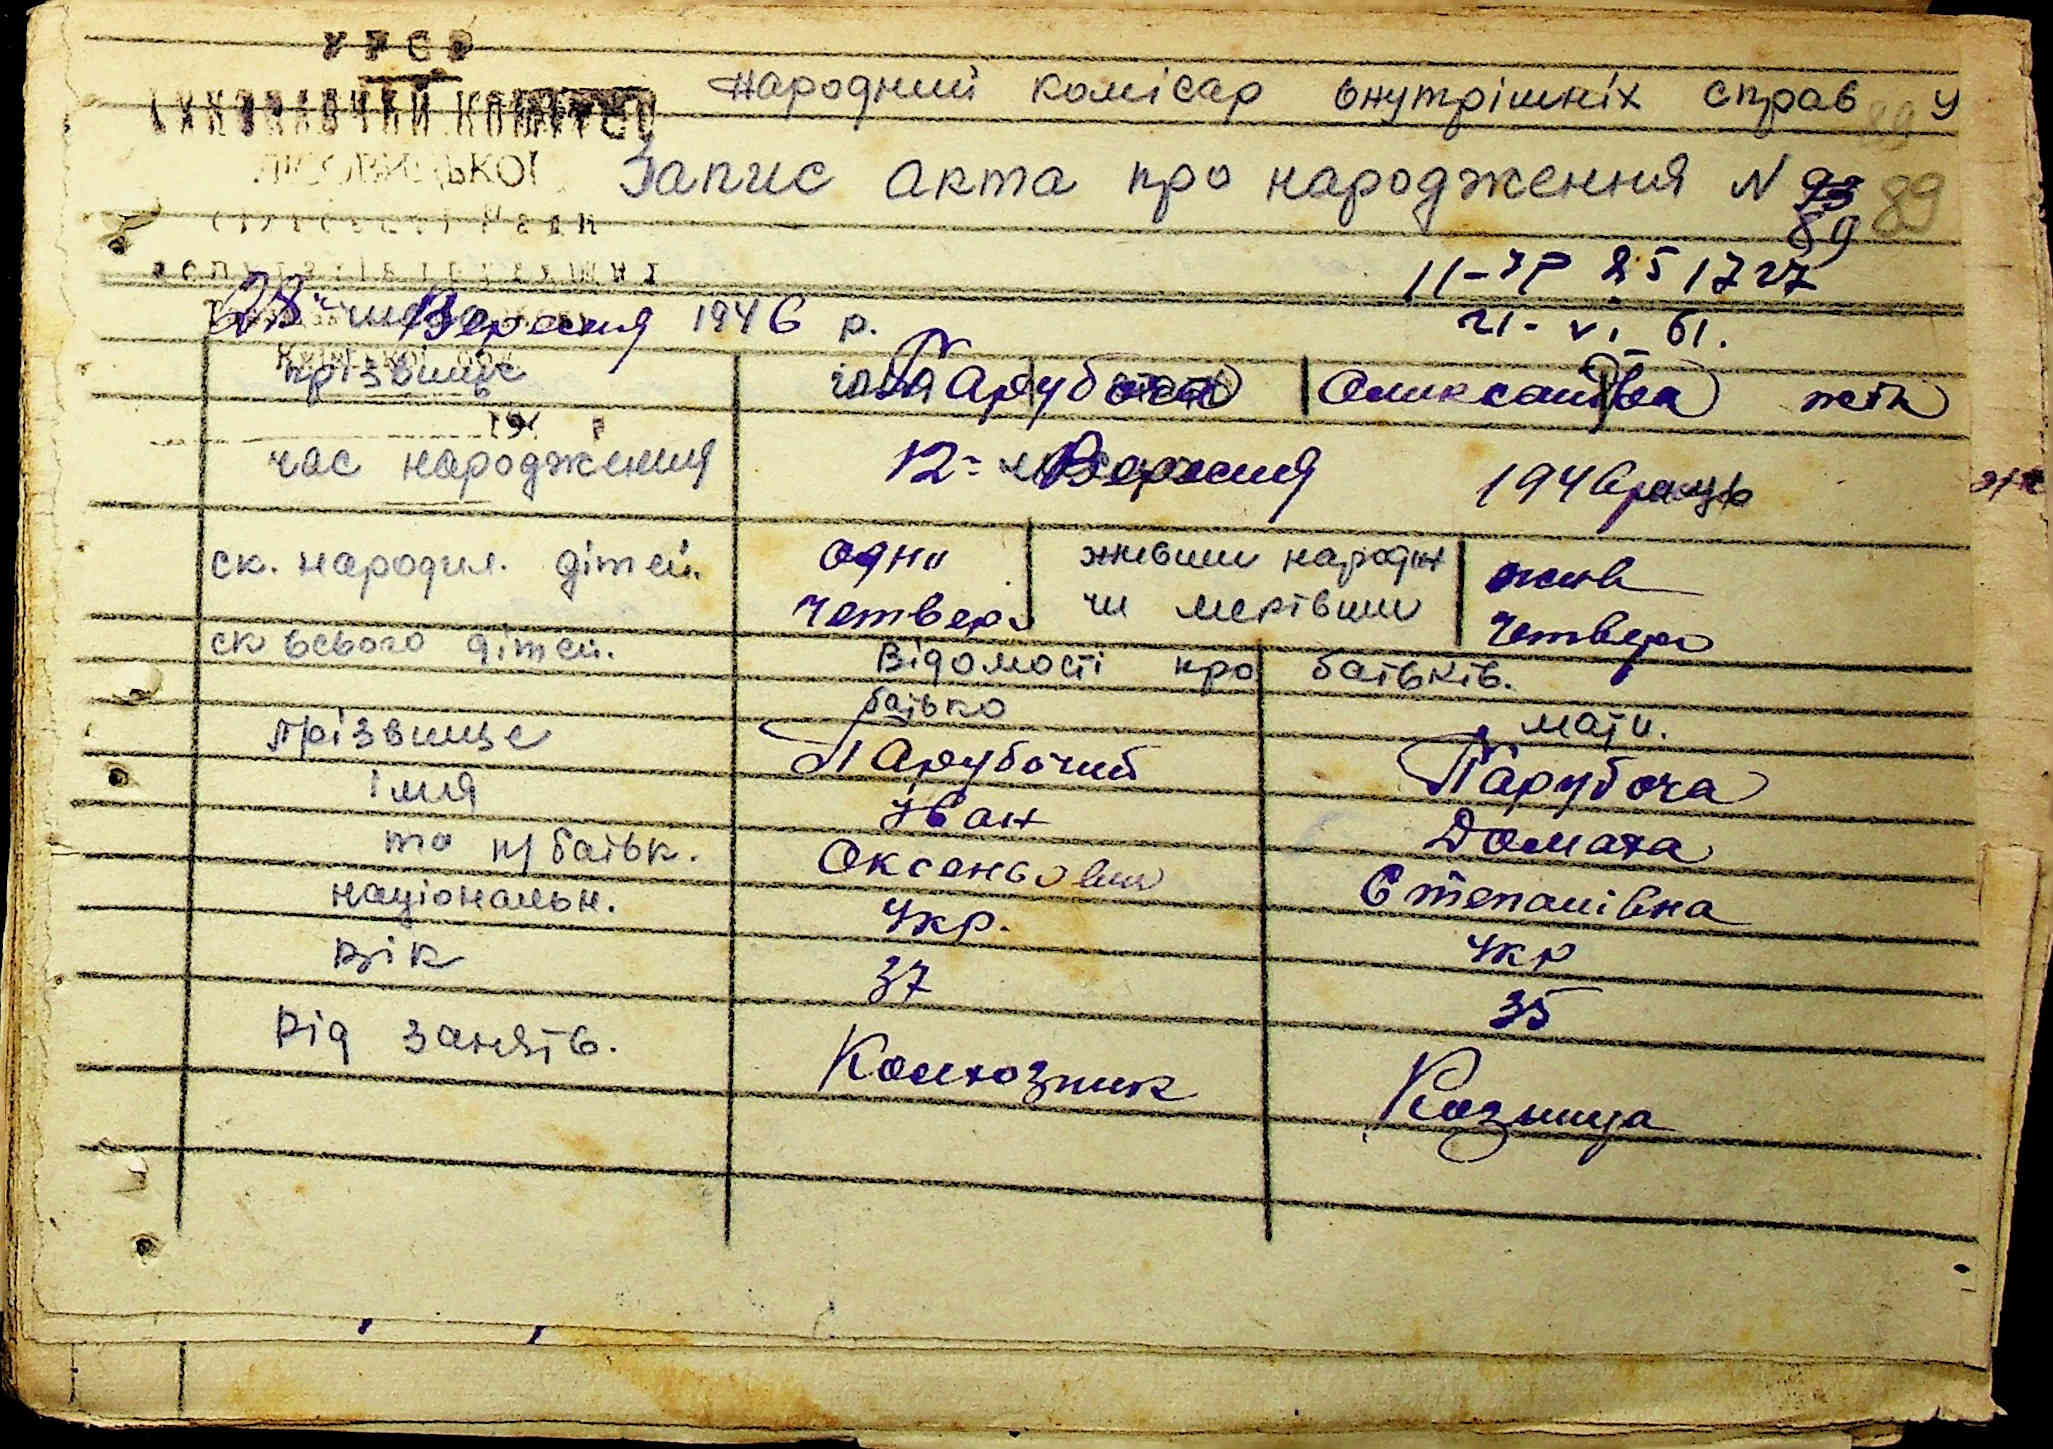 УРСР
ВИКОНАВЧИЙ КОМІТЕТ
Народний комісар внутрішніх справ У
Запис акта про народження N 93 89
89
II-УР 251727
21-VI-61.
28 Вересня 1946 р.
прізвище Парубоча Олександра жін
194 р
час народження 12 Вересня 1946 року
ск. народил. дітей. одна живим народж жив
четверо чи мертвим четверо
ск всього дітей.
Відомості про батьків.
батько мати.
прізвище Парубочий Парубоча
імя Іван Домаха
та п/батьк. Оксеньович Степанівна
національн. Укр. Укр
вік 37 35
Рід занять. Колхозник